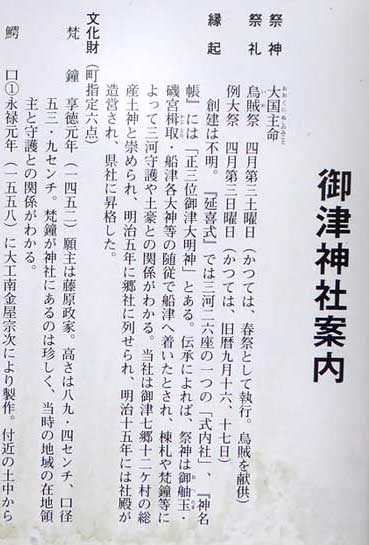 御津神社案内
祭神 大国主命
おおくにぬしのみこと
祭礼 烏賊祭 四月第三土曜日(かつては、春祭として執行。烏賊を献供)
例大祭 四月第三日曜日(かつては、旧暦九月十六、十七日)
縁起 創建は不明。『延喜式』では三河二六座の一つの「式内社」、『神名
帳』には「正三位御津大明神」とある。伝承によれば、祭神は御舳玉・
磯宮楫取・船津各大神等の随従で船津へ着いたとされ、棟札や梵鐘等に
よって三河守護や土豪との関係がわかる。当社は御津七郷十二ケ村の総
産土神と崇められ、明治五年に郷社に列せられ、明治十五年には社殿が
造営され、県社に昇格した。
文化財(町指定六点)
梵鐘 享徳元年(一四五二)願主は藤原政家。高さは八九・四センチ、口径
五三・九センチ。梵鐘が神社にあるのは珍しく、当時の地域の在地領
主と守護との関係がわかる。
鰐口① 永禄元年(一五五八)に大工南金屋宗次により製作。付近の土中から